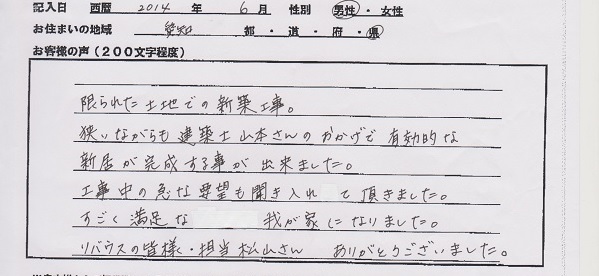 記入日 西暦 2014 年 6 月 性別 男性・女性
お住まいの地域 愛知 都・道・府・県
お客様の声（200文字程度）
限られた土地での新築工事。
狭いながらも建築士山本さんのおかげで有効的な
新居が完成する事が出来ました。
工事中の急な要望も聞き入れ て頂きました。
すごく満足な 我が家になりました。
リバウスの皆様・担当松山さん ありがとうございました。